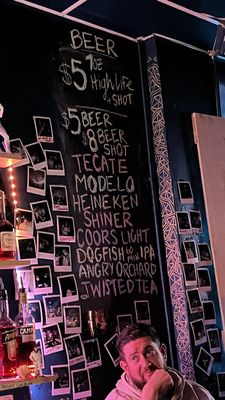 BEER
$5 7oz
High life
& SHOT
$5 BEER
$8 BEER
& SHOT
TECATE
MODELO
HEINEKEN
SHINER
COORS LIGHT
DOGFISH 60 MIN IPA
ANGRY ORCHARD
TWISTED TEA